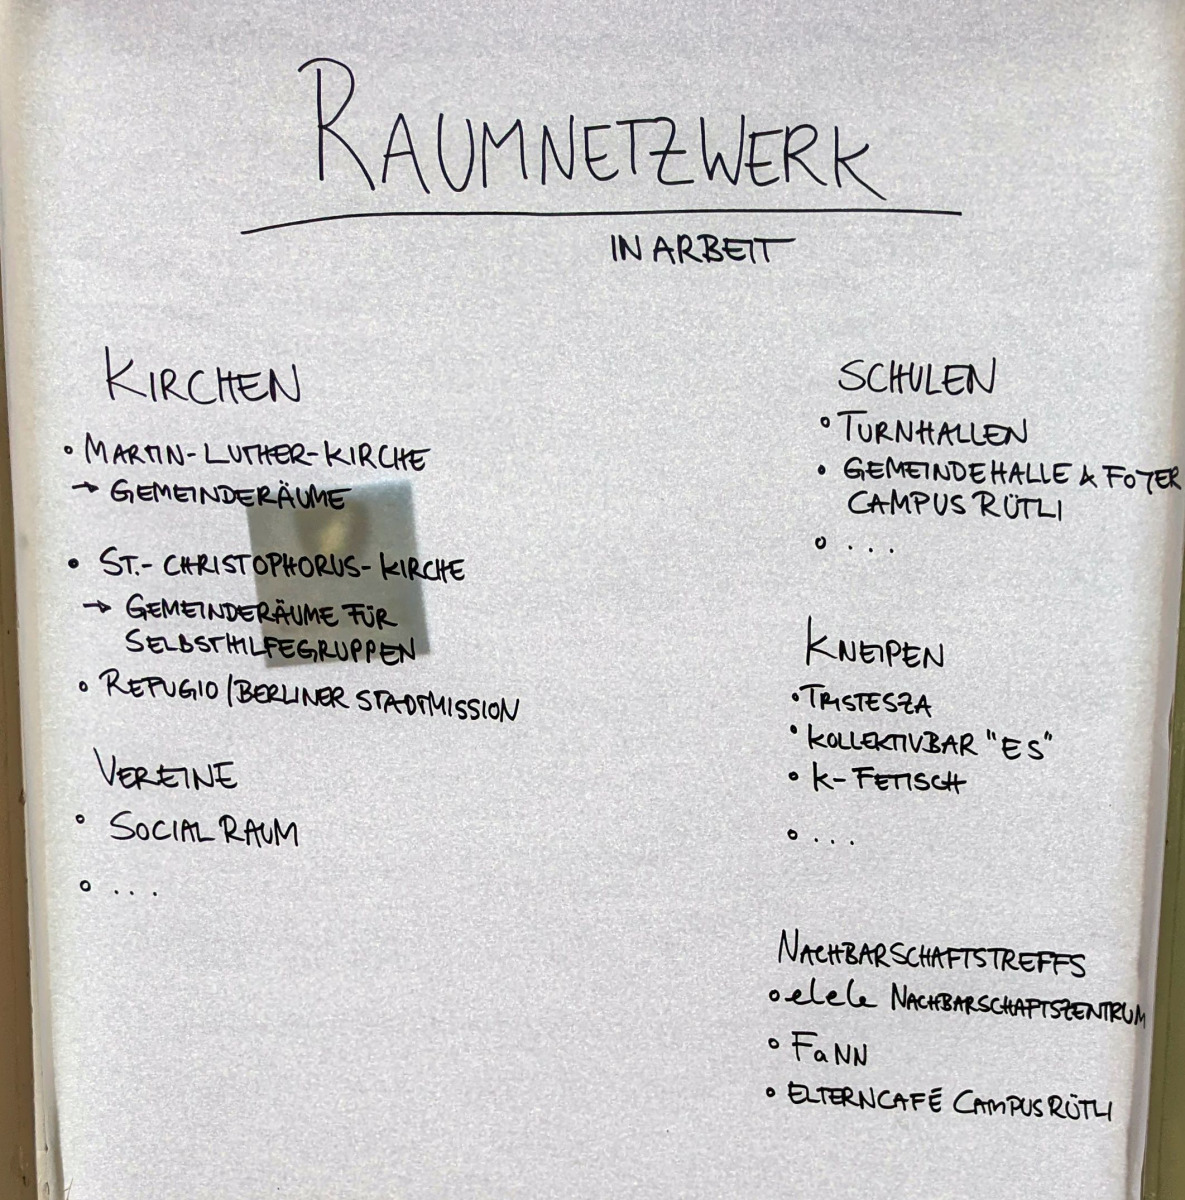 RAUMNETZWERK
IN ARBEIT
KIRCHEN
• MARTIN-LUTHER-KIRCHE
→ GEMEINDERÄUME
• ST.-CHRISTOPHORUS-KIRCHE
→ GEMEINDERÄUME FÜR
SELBSTHILFEGRUPPEN
• REFUGIO/BERLINER STADTMISSION
VEREINE
• SOCIAL RAUM
• ...
SCHULEN
• TURNHALLEN
• GEMEINDEHALLE & FOYER
CAMPUS RÜTLI
• ...
KNEIPEN
• TRISTESZA
• KOLLEKTIVBAR "ES"
• K-FETISCH
• ...
NACHBARSCHAFTSTREFFS
• elele NACHBARSCHAFTSZENTRUM
• FaNN
• ELTERNCAFÉ CAMPUS RÜTLI